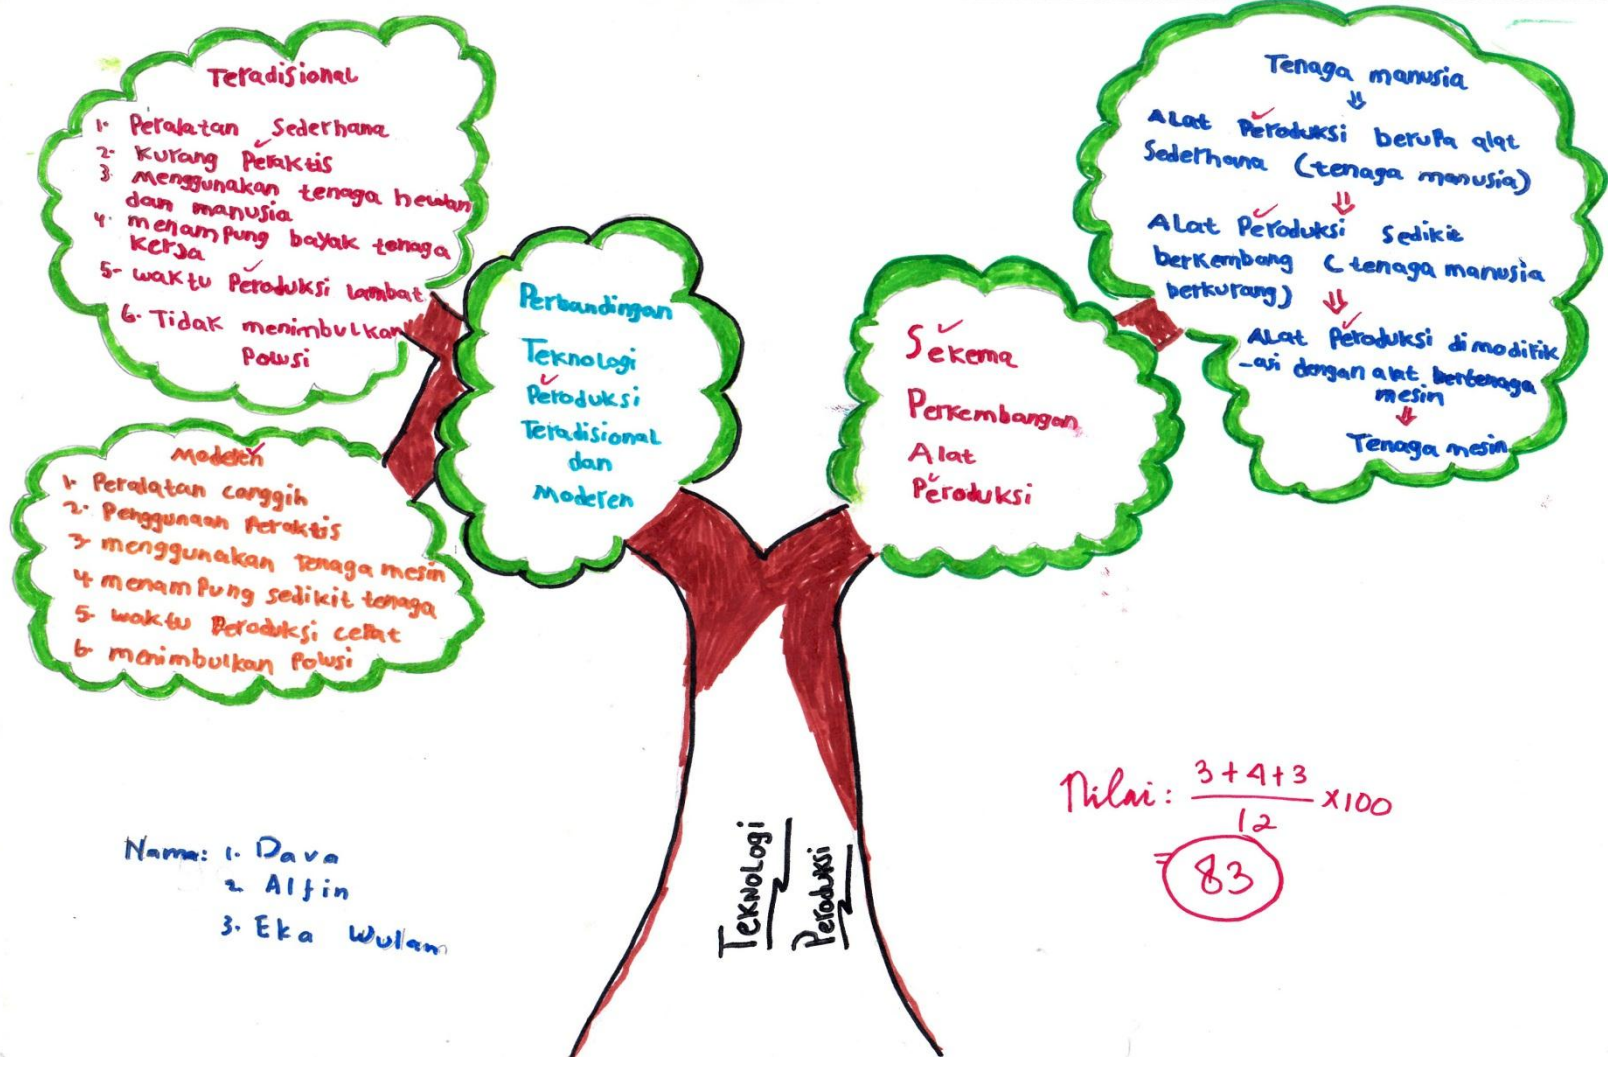 Teradisional
1. Peralatan Sederhana
2. Kurang Peraktis
3. Menggunakan tenaga hewan
dan manusia
4. menampung bayak tenaga
kerja
5- waktu Peroduksi lambat
6. Tidak menimbulkan
Polusi
Moderen
1. Peralatan canggih
2. Penggunaan Peraktis
3. menggunakan tenaga mesin
4 menampung sedikit tenaga
5. waktu Peroduksi cepat
6. menimbulkan Polusi
Perbandingan
Teknologi
Peroduksi
Teradisional
dan
Moderen
Sekema
Perkembangan
Alat
Peroduksi
Tenaga manusia
⇓
ALat Peroduksi berupa alat
Sederhana (tenaga manusia)
⇓
ALat Peroduksi Sedikit
berkembang (tenaga manusia
berkurang)
⇓
ALat Peroduksi dimodifik
-asi dengan alat bertenaga
mesin
⇓
Tenaga mesin
TEKNOLOGI
Peroduksi
Nama: 1. Dava
2. Alfin
3. Eka Wulan
Nilai: 3+4+3
12
×100
= 83